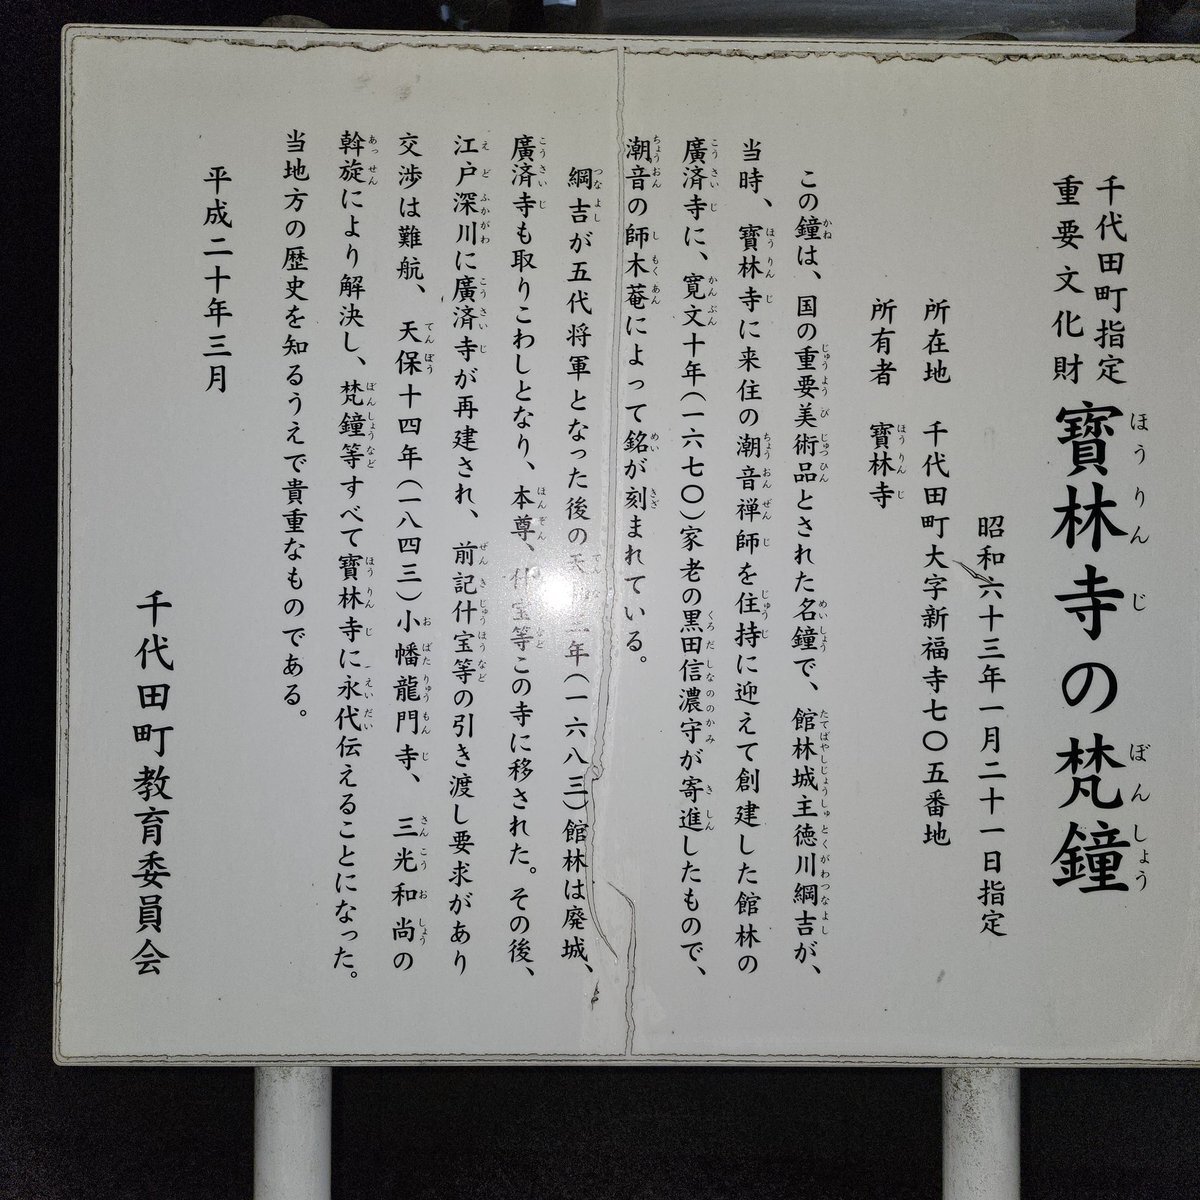 千代田町指定
重要文化財
寶林寺の梵鐘
ほうりんじ ぼんしょう
昭和六十三年一月二十一日指定
所在地 千代田町大字新福寺七〇五番地
所有者 寶林寺
この鐘は、国の重要美術品とされた名鐘で、館林城主徳川綱吉が、
当時、寶林寺に来住の潮音禅師を住持に迎えて創建した館林の
廣済寺に、寛文十年(一六七〇)家老の黒田信濃守が寄進したもので、
潮音の師木菴によって銘が刻まれている。
綱吉が五代将軍となった後の天 三年(一六八三)館林は廃城、
廣済寺も取りこわしとなり、本尊、什宝等この寺に移された。その後、
江戸深川に廣済寺が再建され、前記什宝等の引き渡し要求があり
交渉は難航、天保十四年(一八四三)小幡龍門寺、三光和尚の
斡旋により解決し、梵鐘等すべて寶林寺に永代伝えることになった。
当地方の歴史を知るうえで貴重なものである。
平成二十年三月
千代田町教育委員会